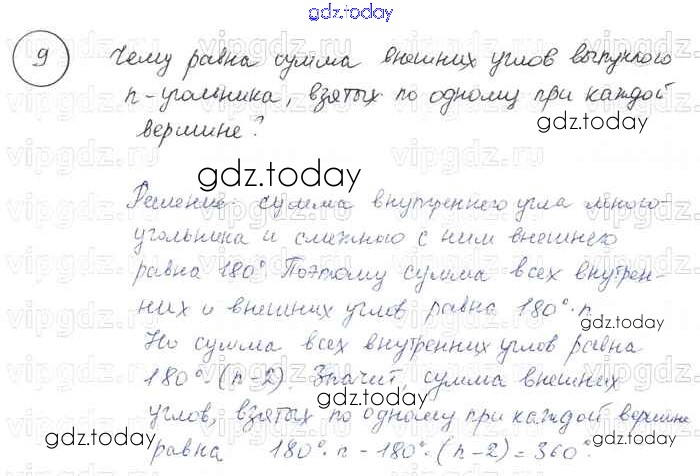 gdz.today
9 Чему равна сумма внешних углов выпуклого
n-угольника, взятых по одному при каждой
вершине?
gdz.today
gdz.today
Решение: сумма внутреннего угла много-
угольника и смежного с ним внешнего
gdz.today
равна 180°. Поэтому сумма всех внутрен-
них и внешних углов равна 180°·n.
gdz.today
Но сумма всех внутренних углов равна
180°·(n-2). Значит, сумма внешних
gdz.today
углов, взятых по одному при каждой вершине
gdz.today
равна 180°·n - 180°·(n-2) = 360°.
gdz.today
vipgdz.ru